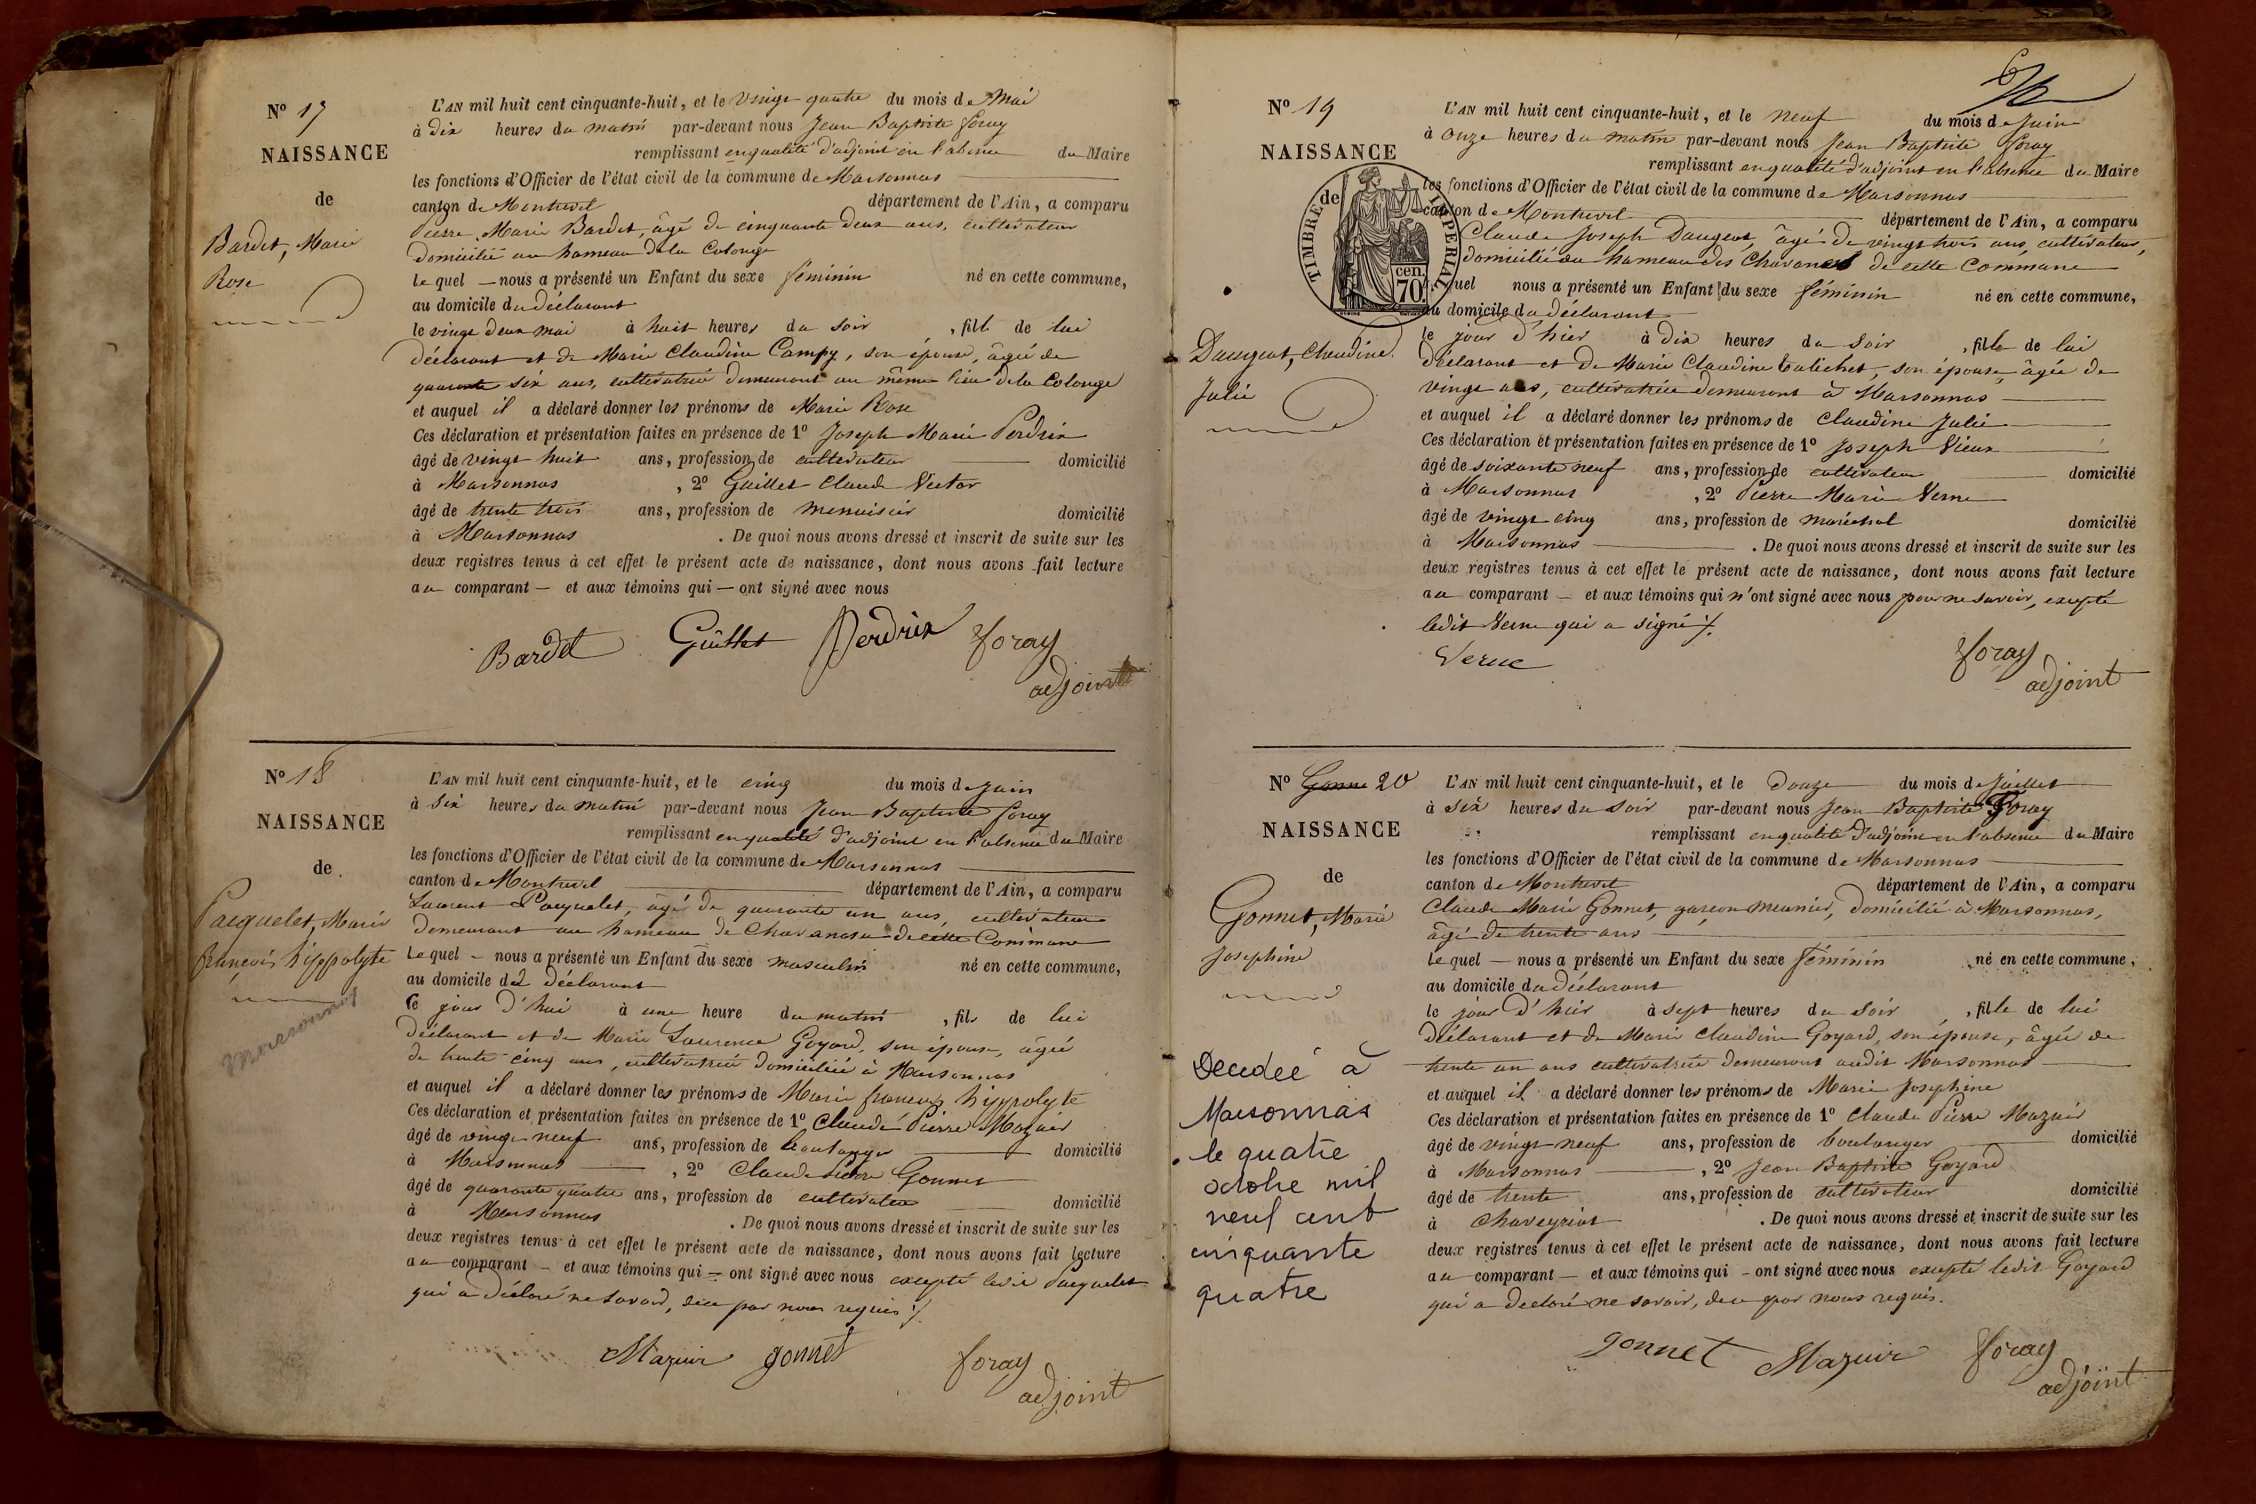 N° 17
NAISSANCE
de
Bardet, Marie
Rose
L'AN mil huit cent cinquante-huit, et le vingt quatre du mois de Mai
à dix heures du matin par-devant nous Jean Baptiste foray
remplissant en qualité d'adjoint en l'absence du Maire
les fonctions d'Officier de l'état civil de la commune de Marsonnas
canton de Montrevel département de l'Ain, a comparu
Pierre Marie Bardet, âgé de cinquante deux ans, cultivateur
domicilié au hameau de la Colonge
lequel nous a présenté un Enfant du sexe féminin né en cette commune,
au domicile du déclarant
le vingt deux mai à huit heures du soir, fille de lui
déclarant et de Marie Claudine Campy, son épouse, âgée de
quarante six ans, cultivatrice demeurant au même lieu de la Colonge
et auquel il a déclaré donner les prénoms de Marie Rose
Ces déclaration et présentation faites en présence de 1° Joseph Marie Perdrix
âgé de vingt huit ans, profession de cultivateur domicilié
à Marsonnas, 2° Guillet Claude Victor
âgé de trente trois ans, profession de menuisier domicilié
à Marsonnas. De quoi nous avons dressé et inscrit de suite sur les
deux registres tenus à cet effet le présent acte de naissance, dont nous avons fait lecture
au comparant et aux témoins qui ont signé avec nous
Bardet Guillet Perdrix foray
adjoint
N° 18
NAISSANCE
de
Pacquelet, Marie
françois hippolyte
Marsonnas
L'AN mil huit cent cinquante-huit, et le cinq du mois de Juin
à six heures du matin par-devant nous Jean Baptiste foray
remplissant en qualité d'adjoint en l'absence du Maire
les fonctions d'Officier de l'état civil de la commune de Marsonnas
canton de Montrevel département de l'Ain, a comparu
Laurent Pacquelet, âgé de quarante un ans, cultivateur
demeurant au hameau de Chavanosse de cette Commune
lequel nous a présenté un Enfant du sexe masculin né en cette commune,
au domicile du déclarant
ce jour d'hui à une heure du matin, fils de lui
déclarant et de Marie Laurence Goyard, son épouse, âgée
de trente cinq ans, cultivatrice domiciliée à Marsonnas
et auquel il a déclaré donner les prénoms de Marie françois hippolyte
Ces déclaration et présentation faites en présence de 1° Claude Pierre Mazuir
âgé de vingt neuf ans, profession de boulanger domicilié
à Marsonnas, 2° Claude Pierre Gonnet
âgé de quarante quatre ans, profession de cultivateur domicilié
à Marsonnas. De quoi nous avons dressé et inscrit de suite sur les
deux registres tenus à cet effet le présent acte de naissance, dont nous avons fait lecture
au comparant et aux témoins qui ont signé avec nous excepté ledit Pacquelet
qui a déclaré ne savoir, de ce par nous requis
Mazuir gonnet foray
adjoint
N° 19
NAISSANCE
de
TIMBRE IMPERIAL
70 cen.
Daugeat, Claudine
Julie
L'AN mil huit cent cinquante-huit, et le neuf du mois de Juin
à onze heures du matin par-devant nous Jean Baptiste foray
remplissant en qualité d'adjoint en l'absence du Maire
les fonctions d'Officier de l'état civil de la commune de Marsonnas
canton de Montrevel département de l'Ain, a comparu
Claude Joseph Daugeat, âgé de vingt trois ans, cultivateur,
domicilié au hameau des Chavannes de cette Commune
lequel nous a présenté un Enfant du sexe féminin né en cette commune,
au domicile du déclarant
le jour d'hier à dix heures du soir, fille de lui
déclarant et de Marie Claudine Talichet, son épouse, âgée de
vingt ans, cultivatrice demeurant à Marsonnas
et auquel il a déclaré donner les prénoms de Claudine Julie
Ces déclaration et présentation faites en présence de 1° Joseph Vieux
âgé de soixante neuf ans, profession de cultivateur domicilié
à Marsonnas, 2° Pierre Marie Verne
âgé de vingt cinq ans, profession de maréchal domicilié
à Marsonnas. De quoi nous avons dressé et inscrit de suite sur les
deux registres tenus à cet effet le présent acte de naissance, dont nous avons fait lecture
au comparant et aux témoins qui n'ont signé avec nous pour ne savoir, excepté
ledit Verne qui a signé
Verne foray
adjoint
N° Gonne 20
NAISSANCE
de
Gonnet, Marie
Josephine
Decedeé à
Marsonnas
le quatre
octobre mil
neuf cent
cinquante
quatre
L'AN mil huit cent cinquante-huit, et le douze du mois de Juillet
à six heures du soir par-devant nous Jean Baptiste Foray
remplissant en qualité d'adjoint en l'absence du Maire
les fonctions d'Officier de l'état civil de la commune de Marsonnas
canton de Montrevel département de l'Ain, a comparu
Claude Marie Gonnet, garçon meunier, domicilié à Marsonnas,
âgé de trente ans
lequel nous a présenté un Enfant du sexe féminin né en cette commune,
au domicile du déclarant
le jour d'hier à sept heures du soir, fille de lui
déclarant et de Marie Claudine Goyard, son épouse, âgée de
trente un ans cultivatrice demeurant audit Marsonnas
et auquel il a déclaré donner les prénoms de Marie Josephine
Ces déclaration et présentation faites en présence de 1° Claude Pierre Mazuir
âgé de vingt neuf ans, profession de boulanger domicilié
à Marsonnas, 2° Jean Baptiste Goyard
âgé de trente ans, profession de cultivateur domicilié
à Chaveyriat. De quoi nous avons dressé et inscrit de suite sur les
deux registres tenus à cet effet le présent acte de naissance, dont nous avons fait lecture
au comparant et aux témoins qui ont signé avec nous excepté ledit Goyard
qui a declaré ne savoir, de ce par nous requis.
gonnet Mazuir foray
adjoint